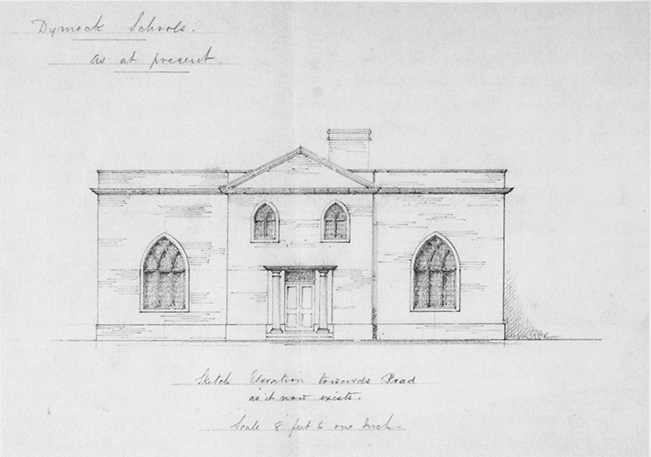 Dymock Schools.
as at present
Sketch Elevation towards Road
as it now exists.
Scale 8 feet to one Inch.